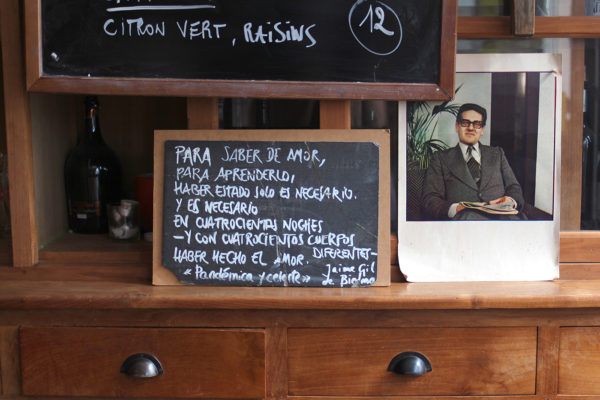 CITRON VERT, RAISINS
12
PARA SABER DE AMOR,
PARA APRENDERLO,
HABER ESTADO SOLO ES NECESARIO.
Y ES NECESARIO
EN CUATROCIENTAS NOCHES
—Y CON CUATROCIENTOS CUERPOS
DIFERENTES—
HABER HECHO EL AMOR.
« Pandémica y celeste » Jaime Gil
de Biedma